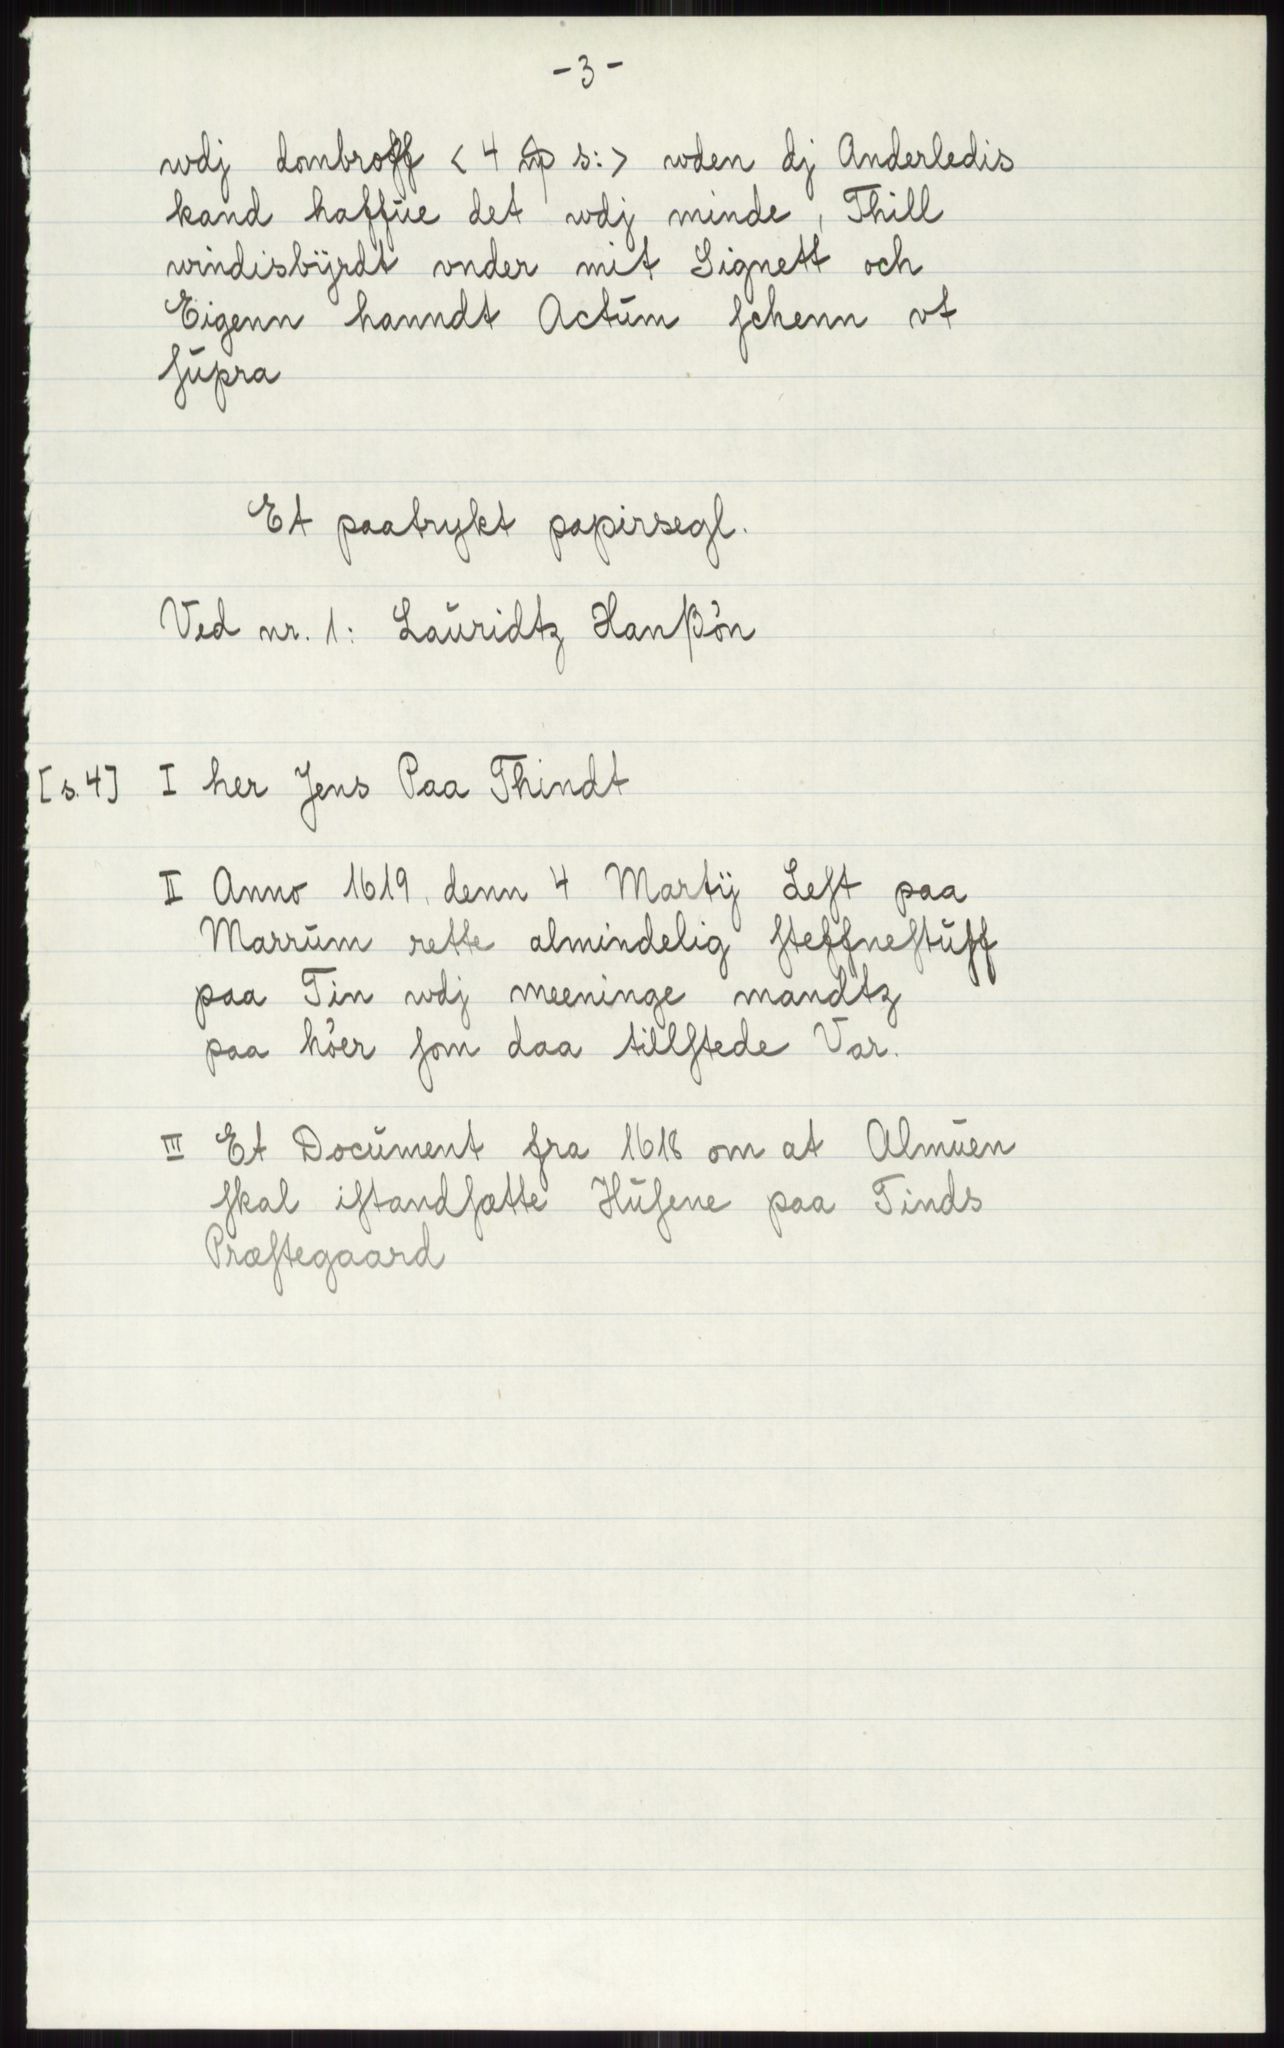 -3-
wdj dombroff < 4 s: > wden dj Anderledis
kand haffŭe det wdj minde, Thill
windisbÿrdt vnder mit Signett och
Eigenn hanndt Actŭm schenn vt
sŭpra
Et paatrykt papirsegl.
Ved nr. 1: Laŭridtz Hanßøn
[s. 4] I her Jens Paa Thindt
II Anno 1619, denn 4 Martÿ Lest paa
Marrŭm rette almindelig steffnestŭff
paa Tin wdj meeninge mandtz
paa høer som daa tillstede Var.
III Et Docŭment fra 1618 om at Almŭen
skal istandsætte Hŭsene paa Tinds
Præstegaard